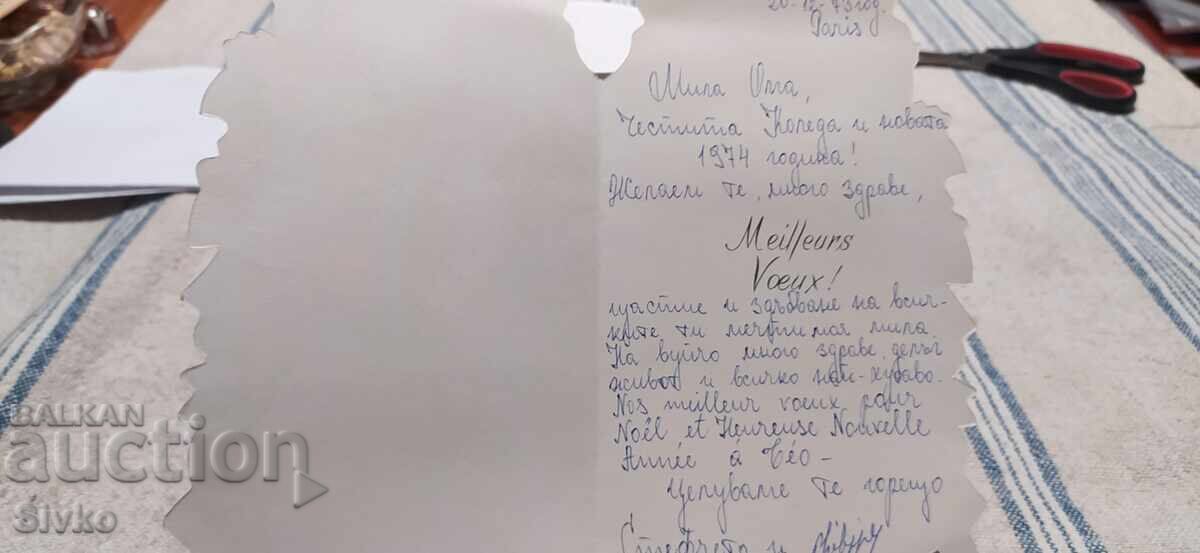 20-12-73 год.
Paris
Мила Оля,
Честита Коледа и новата
1974 година!
Желаем ти много здраве,
Meilleurs
Vœux!
щастие и сдъбване на всич-
ките ти мечти моя мила.
На вуйчо много здраве, дълъг
живот и всичко най-хубаво.
Nos meilleur vœux pour
Noël et Heureuse Nouvelle
Année à Téo –
Целуваме те горещо
Стефчета и Philipp
BALKAN
auction
Sivko